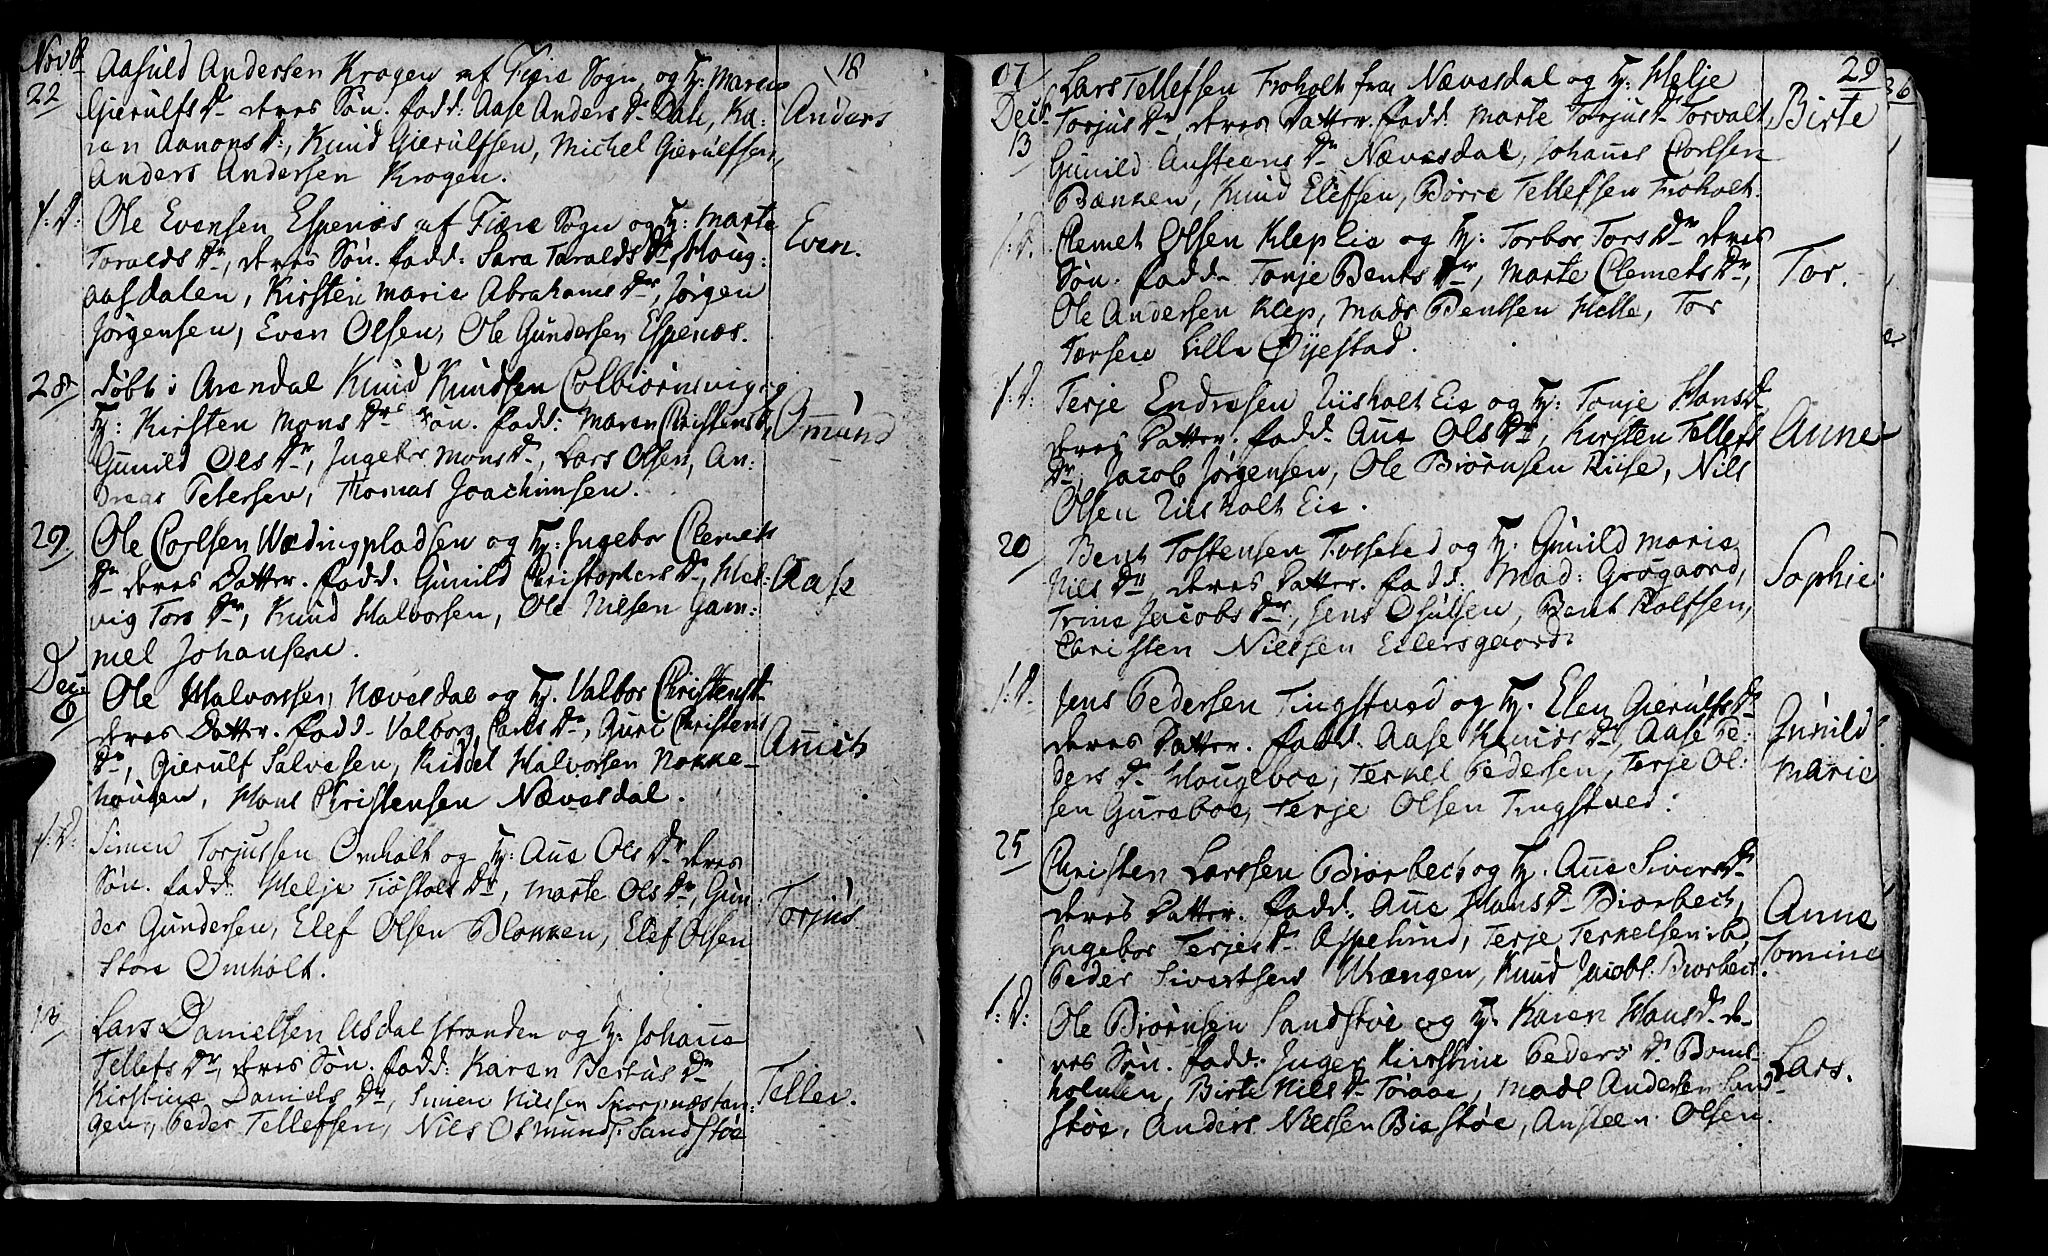 Novb 18
22 Aasuld Andersen Krogen af Fiære Sogn og H: Maren
Gierulfs Dr deres Søn. fadd: Aase Anders Dr Dale, Ka: Anders
ren Aanons Dr, Knud Gierulfsen, Michel Gierulfsen,
Anders Andersen Krogen.
s: D: Ole Evensen Espenæs af Fiære Sogn og H: Marte
Toralds Dr, deres Søn. fadd: Sara Taralds Dr Houg: Even.
aasdalen, Kirsten Marie Abrahams Dr, Jørgen
Jørgensen, Even Olsen, Ole Gundersen Espenæs.
28 døbt i Arendal Knud Knudsen Colbiørnsvig og
H: Kirsten Mons Dr Søn. fadd: Maren Christens Dr, Omund
Gunild Ols Dr, Ingebor Mons Dr, Lars Olsen, An:
dreas Petersen, Thomas Joachimsen.
29. Ole Carlsen Wædingpladsen og H: Ingebor Clemets
Dr deres Datter. fadd. Gunild Christophers Dr, Hel: Aase
vig Tors Dr, Knud Halvorsen, Ole Nilsen Gam:
mel Johansen.
Decb
6 Ole Halvorsen Nævesdal og H. Valbor Christens Dr
deres Datter. fadd. Valborg Carls Dr, Guri Christens Annich
Dr, Gierulf Salvesen, Kiddel Halvorsen Nokke-
hougen, Hans Christensen Nævesdal.
s: D: Simen Torjussen Omholt og H: Ane Ols Dr deres
Søn. fadd: Helje Tiøstols Dr, Marte Ols Dr, Gun: Torjus.
der Gundersen, Elef Olsen Blokken, Elef Olsen
Store Omholt.
13 Lars Danielsen Asdal stranden og H: Johanne
Tellefs Dr, deres Søn. fadd: Karen Berius Dr Tellev.
Kirstine Daniels Dr, Simen Nilssen Skorpnæstan:
gen, Peder Tellefsen, Nils Osmunds. Sandstøe
07 29
Decb Lars Tellefsen Froholt fra Nævesdal og H: Helje
13 Torjus Dr, deres Datter. fadd: Marte Torjus Dr Torvalt, Birte
Gunild Ansteans Dr Nævesdal, Johanes Carlsen
Bænken, Knud Elefsen, Børre Tellefsen Froholt.
s: D. Clemet Olsen Klep Eie og H: Torbor Tors Dr deres
Søn. fadd. Tonje Bents Dr, Marte Clemets Dr, Tor.
Ole Andersen Klep, Mads Bentsen Helle, Tor
Torsen Lille Øyestad.
s: D: Terje Endresen Riisholt Eie og H: Tonje Hans Dr
deres Datter. fadd. Ane Ols Dr, Kirsten Tellefs Anne
Dr, Jacob Jørgensen, Ole Biørnsen Riise, Nils
Olsen Riisholt Eie.
20 Bent Tostensen Fosseled og H. Gunild Marie
Nils Dr deres Datter. fadd. Mad: Grøgaard, Sophie.
Trine Jacobs Dr, Jens Osulsen, Bent Rolfsen,
Christen Nielsen Eilersgaard.
s: D. Jens Pedersen Tingstved og H. Elen Gierulfs Dr
deres Datter. fadd. Aase Knuds Dr, Aase Pe: Gunild
ders Dr Hougeboe, Terkel Pedersen, Terje Ol: Marie
sen Gureboe, Terje Olsen Tingstved:
25 Christen Larssen Biorbech og H. Ane Sivers Dr
deres Datter. fadd. Ane Hans Dr Biorbech, Anne
Ingebor Terjes Dr Aspelund, Terje Terkelsen ibd, Tomine
Peder Sivertsen Wrængen, Knud Jacobs. Biorbech.
s: D: Ole Biørnsen Sandstøe og H. Karen Hans Dr de-
res Søn. fadd. Inger Kirstine Peders Dr Boms- Lars.
holmen, Birte Nils Dr Toraae, Mads Andersen Sand-
støe, Anders Nielsen Biestøe, Ansteen Olsen.
36